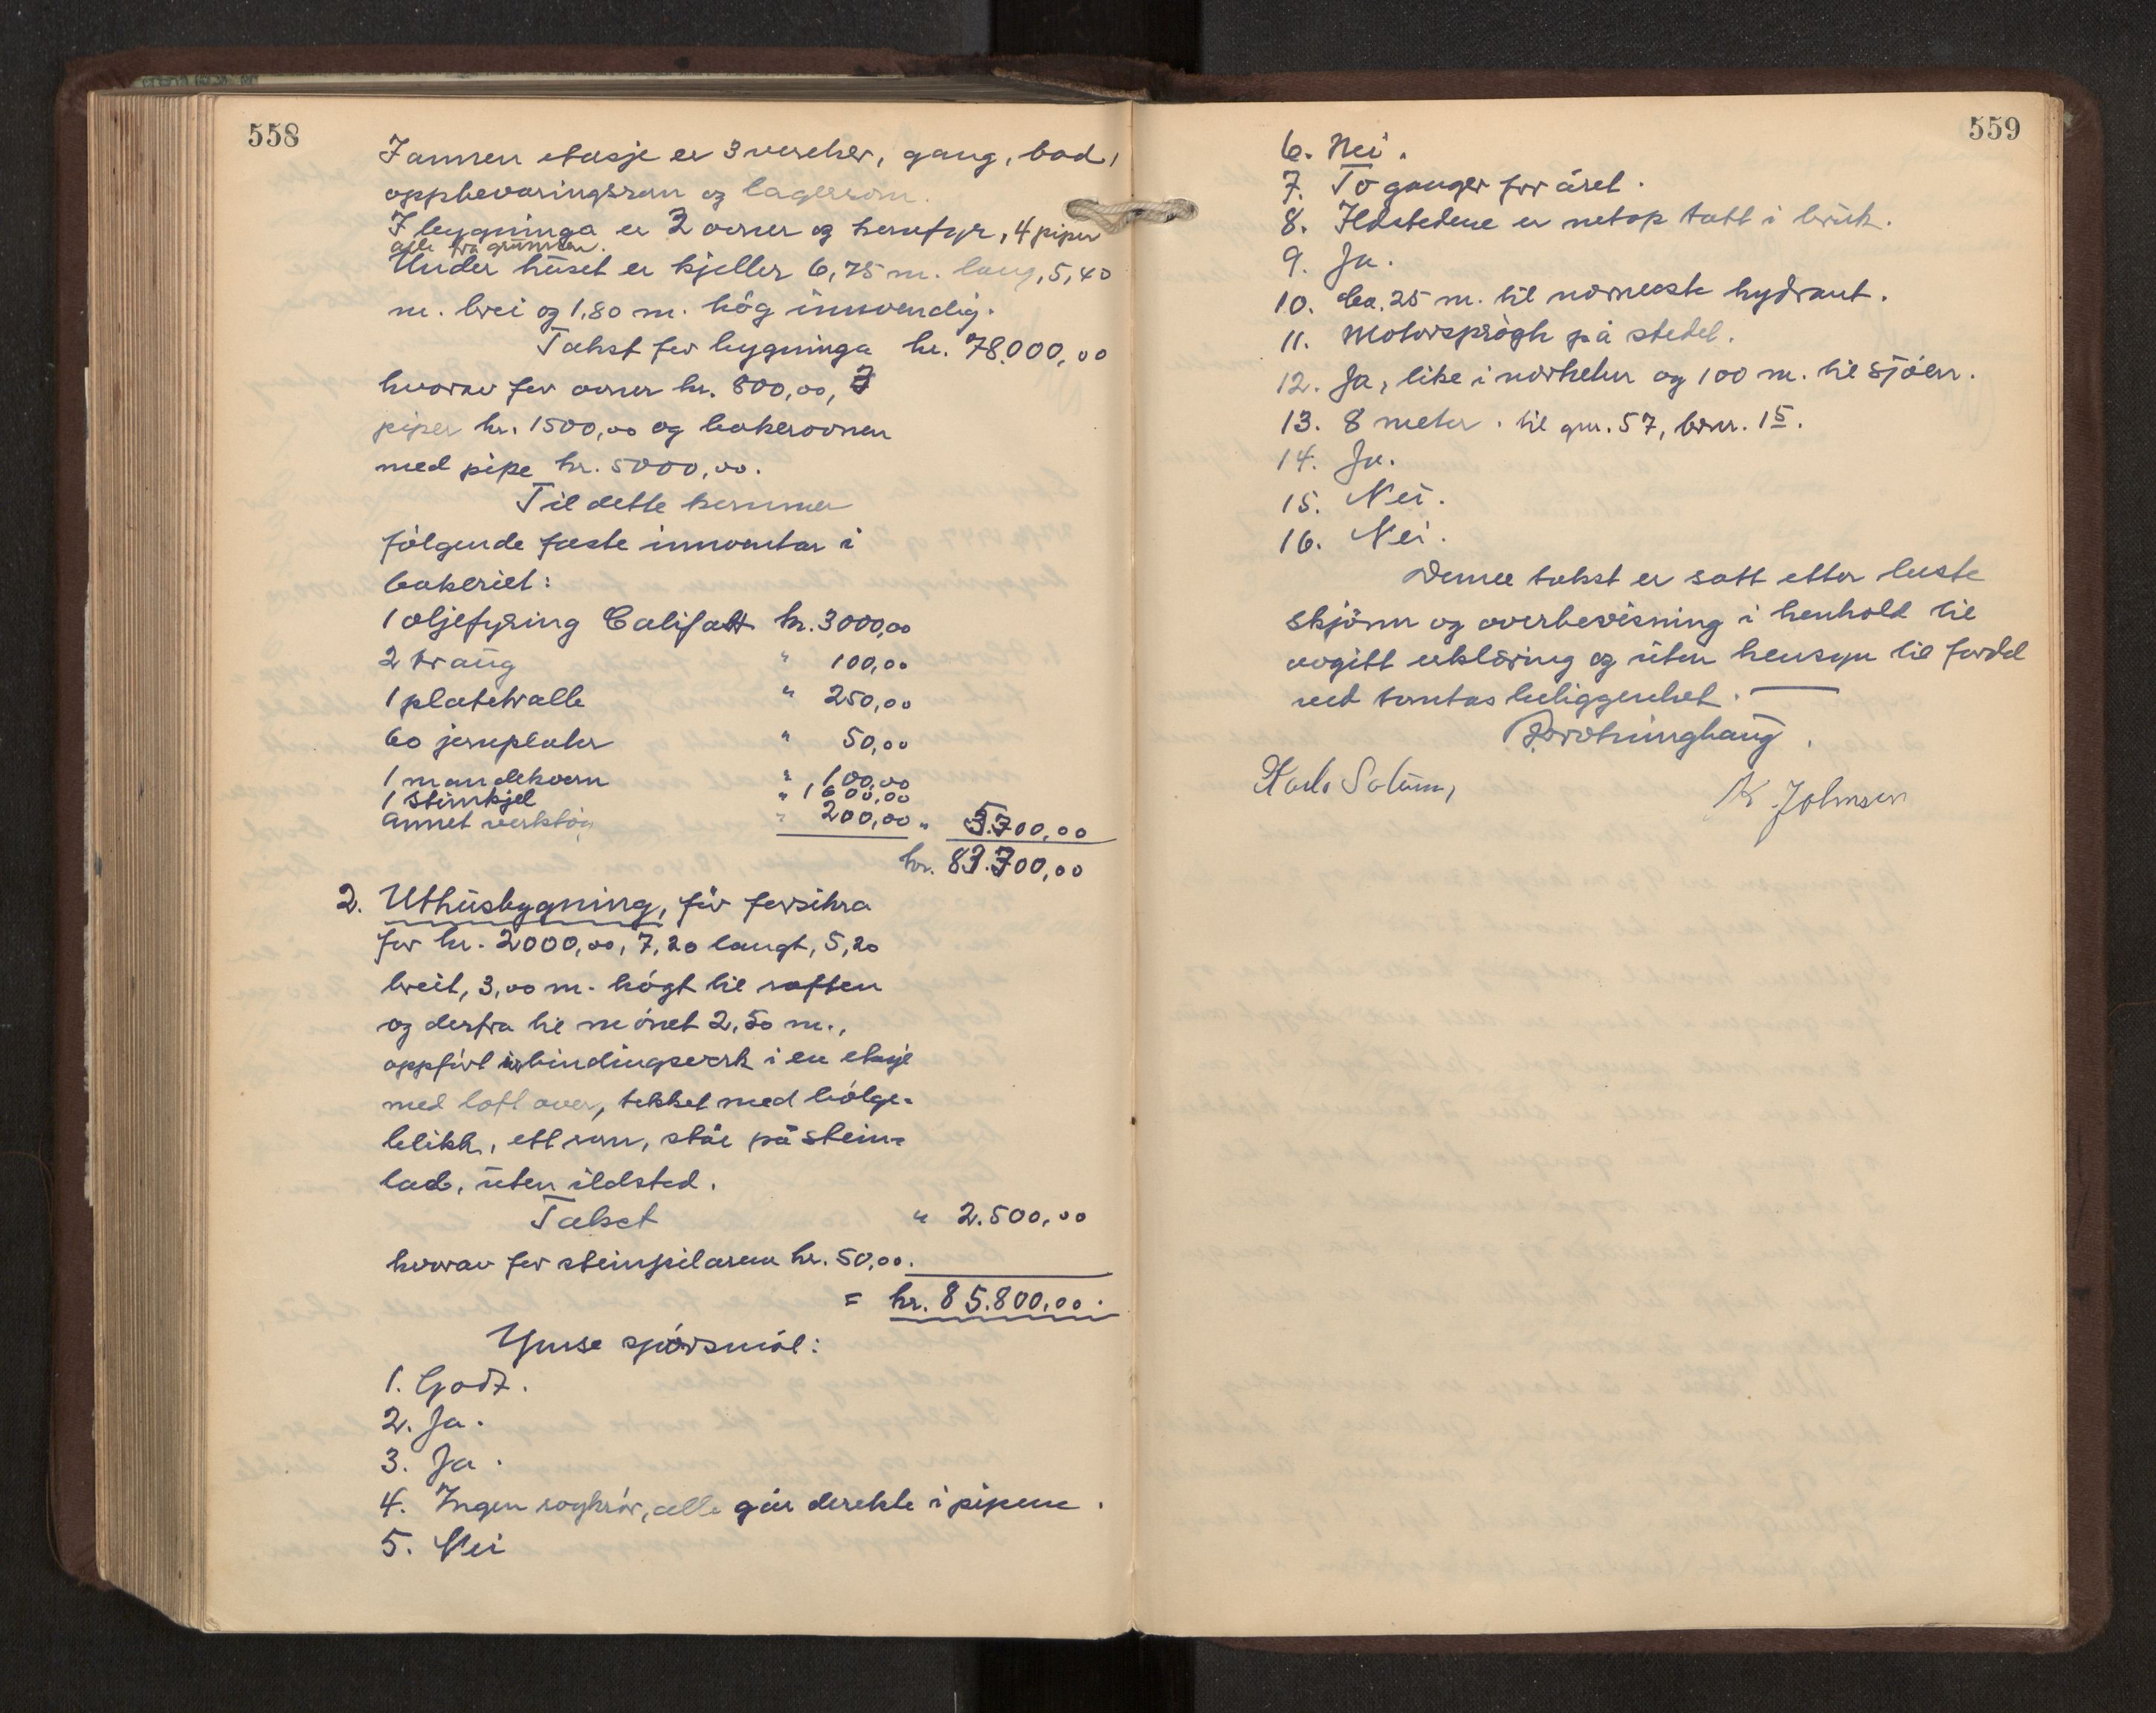 558
I annen etasje er 3 verelser, gang, bad,
oppbevaringsrom og lagerrom.
I bygninga er 2 ovner og komfyr, 4 piper
alle fra grunnen.
Under huset er kjeller 6,75 m. lang, 5,40
m. brei og 1,80 m. høg innvendig.
Takst for bygninga kr. 78.000,00
hvorav for ovner kr. 800,00, 3
piper kr. 1500,00 og bakerovnen
med pipe kr. 5000,00.
Til dette kommer
følgende faste inventar i
bakeriet:
1 oljefyring Califatt kr. 3000,00
2 traug " 100,00
1 platetralle " 250,00
60 jernplater " 50,00
1 mandelkvern " 100,00
1 Stimkjel " 1600,00
annet verktøy " 200,00 " 5.300,00
kr. 83.300,00
2. Uthusbygning, før forsikra
for kr. 2000,00, 7,20 langt, 5,20
breit, 3,00 m. høgt til raften
og derfra til mønet 2,50 m.,
oppført i bindingsverk i en etasje
med loft over, tekket med bølge-
blikk, ett rom, står på stein-
lad, uten ildsted.
Takst " 2.500,00
hvorav for steinpilarene kr. 50,00.
= kr. 85.800,00.
Ymse spørsmål:
1. Godt.
2. Ja.
3. Ja.
4. Ingen røykrør, alle går derekte i pipene.
5. Nei
559
6. Nei.
7. To ganger for året.
8. Ildstedene er netop tatt i bruk.
9. Ja.
10. Ca. 25 m. til nærmeste hydrant.
11. Motorsprøyte på stedet.
12. Ja, like i nærheten og 100 m. til sjøen.
13. 8 meter. til gnr. 57, brnr. 15.
14. Ja.
15. Nei.
16. Nei.
Denne takst er satt etter beste
skjønn og overbevisning i henhold til
avgitt erklæring og uten hensyn til fordel
ved tomtas beliggenhet.
Dronninghaug.
Karl Solum, K. Johnsen